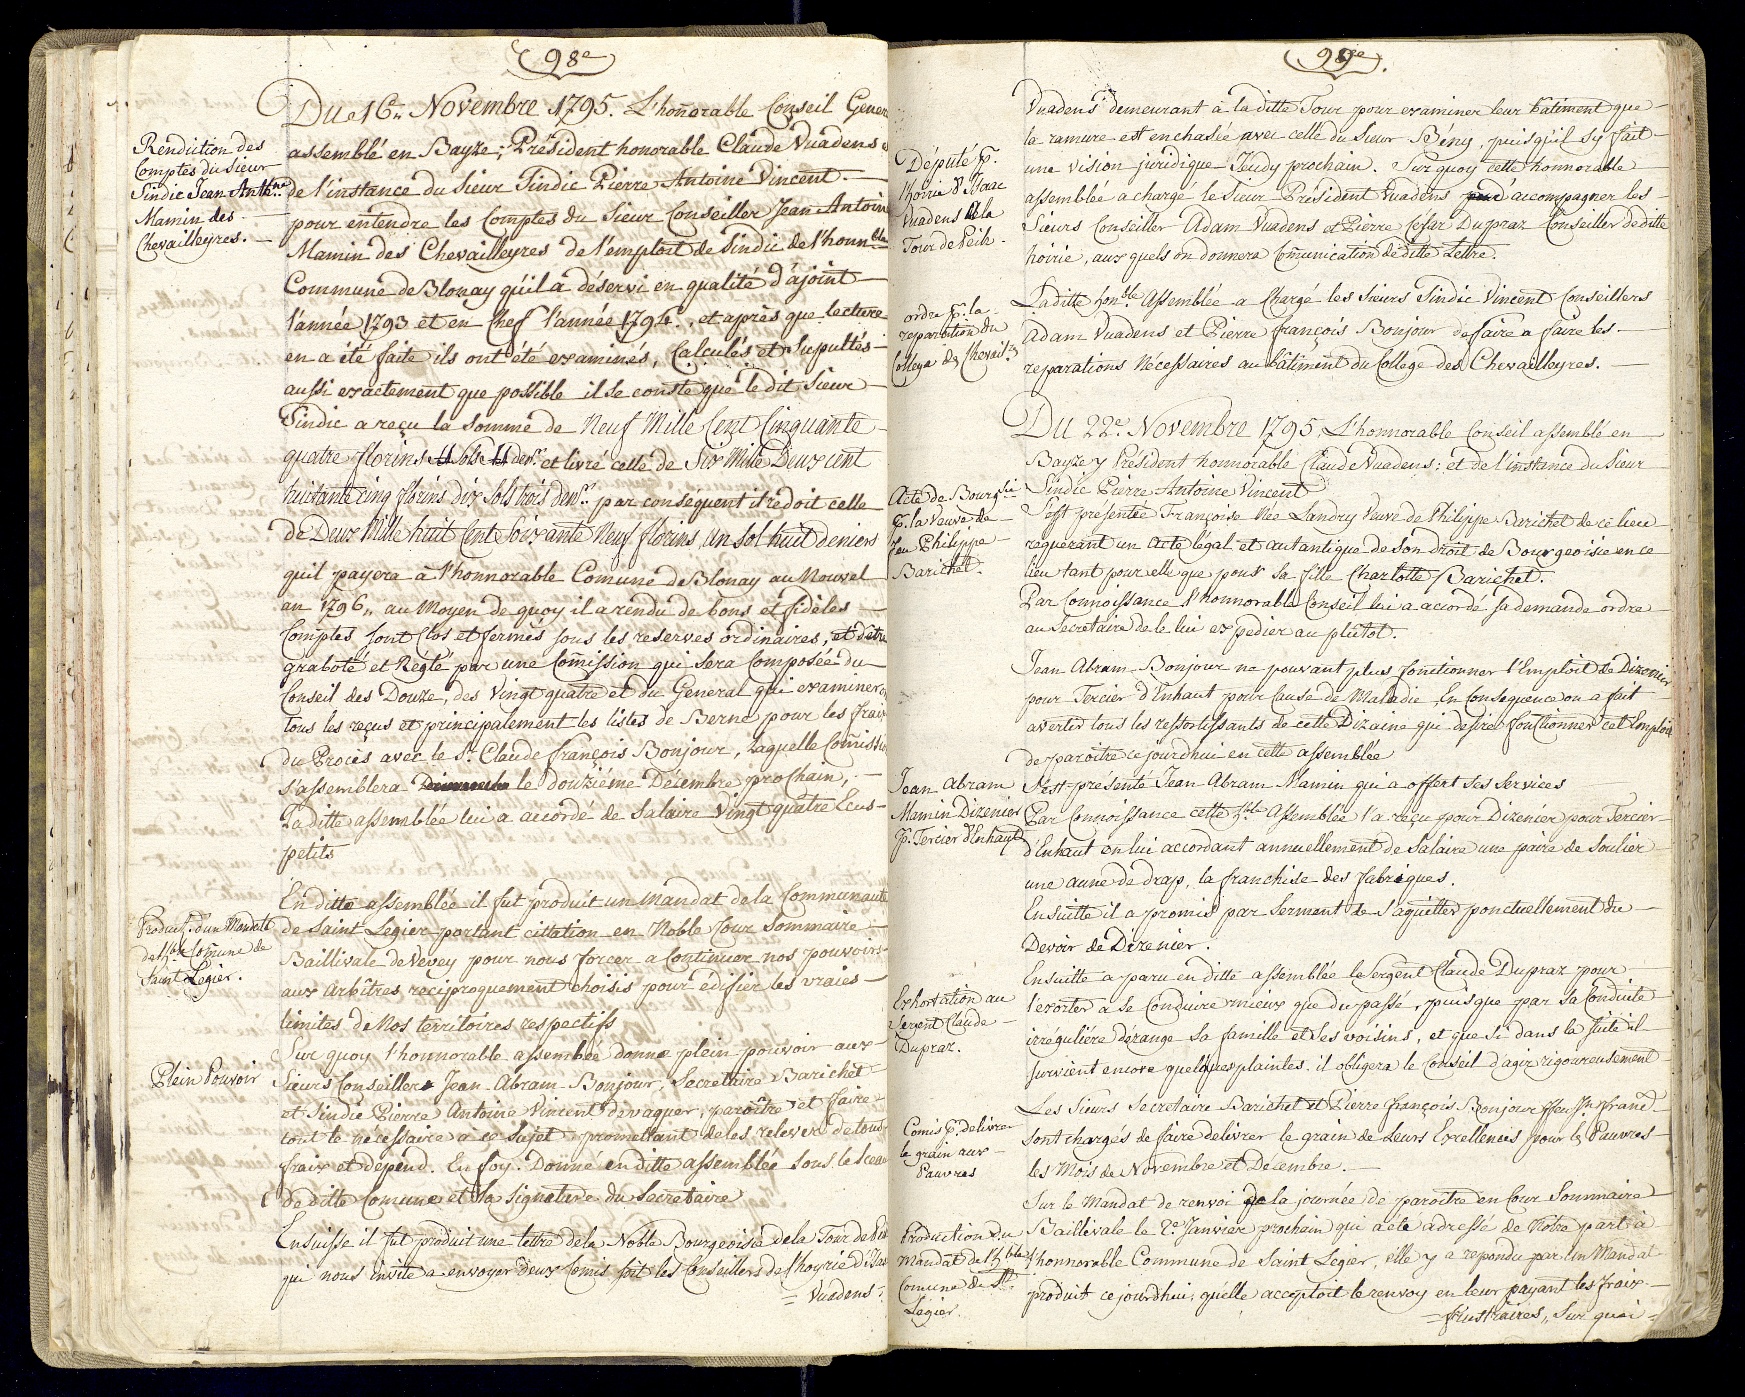 98e
Du 16e Novembre 1795. L'honnorable Conseil Gener
assemblé en Bayze; Président honorable Claude Vuadens e
de l'instance du Sieur Sindic Pierre Antoine Vincent. —
pour entendre les Comptes du Sieur Conseiller Jean Antoine
Mamin des Chevailleyres de l'emploit de Sindic de l'honnble
Commune de Blonay qu'il a déservi en qualité d'ajoint —
l'année 1793 et en Chef l'année 1794., et après que lecture
en a été faite ils ont été examinés, Calculés et Suputtés —
aussi exactement que possible il se conste que le dit Sieur —
Sindic a reçu la somme de Neuf Mille Cent Cinquante —
quatre florins 11 sols 11 den.rs et livré celle de Six Mille Deux cent
huitante cinq florins dix sols trois den.rs par conséquent il rédoit celle
de Deux Mille huit Cent Soixante Neuf florins, Un sol huit deniers
quil payera à l'honnorable Comune de Blonay au Nouvel
an 1796,, au Moyen de quoy il a rendu de bons et fidèles —
Comptes sont Clos et fermés sous les reserves ordinaires, et d'être
graboté et Réglé par une Comission qui sera Composée du —
Conseil des Douze, des Vingt quatre et du General qui examineront
tous les reçus et principalement les listes de Berne pour les fraix
du Procès avec le Sr. Claude françois Bonjour, laquelle Comission
s'assemblera le douziéme Décembre prochain, —
Laditte assemblée lui a accordé de Salaire Vingt quatre Ecus —
petits
En ditte assemblée il fut produit un mandat de la Communauté
de Saint Legier portant cittation en Noble Cour Sommaire —
Baillivale de Vevey pour nous forcer a Continuer nos pouvoirs —
aux Arbitres réciproquement choisis pour édifier les vraies —
limites de Nos territoires respectifs
Sur quoy l'honnorable assemblée donne plein pouvoir aux —
Sieurs Conseiller Jean Abram Bonjour, Secrettaire Barichet —
et Sindic Pierre Antoine Vincent de vaquer, paroître et faire —
tout le nécessaire à ce Sujet, promettant de les relever de tous
fraix et dépend. En foy. Donné en ditte assemblée sous le sceau
de ditte Comune et la Signature du Secretaire
Ensuisse il fut produit une lettre de la Noble Bourgeoisie de la Tour de Peil
qui nous invite a envoyer deux Comis soit les Conseillers de l'hoyrie d'Isac
= Vuadens =
Rendiction des
Comptes du Sieur
Sindic Jean Anthne
Mamin des —
Chevailleyres. —
Produit. d'un Mandat
de l'hble Comune de
Saint Legier.
Plein Pouvoir
99e.
Vuadens demeurant à la ditte Tour pour examiner leur batiment que —
la ramure est enchasée avec celle du Sieur Bény, puisqu'il sy fait —
une vision juridique Jeudy prochain. Sur quoy cette honnorable
assemblée a chargé le Sieur Président Vuadens d'accompagner les —
Sieurs Conseiller Adam Vuadens et Pierre Cesar Dupraz Conseiller de ditte
hoirie, aux quels on donnera Comunication de ditte Lettre.
Laditte honble Assemblée a Chargé les Sieurs Sindic Vincent Conseillers
Adam Vuadens et Pierre françois Bonjour de faire a faire les —
reparations Nécessaires au bâtiment du College des Chevailleyres. —
Du 22e. Novembre 1795, L'honnorable Conseil assemblé en —
Bayze y Président honnorable Claude Vuadens; et de l'instance du Sieur
Sindic Pierre Antoine Vincent
S'est presentée Françoise Née Landry Veuve de Philippe Barichet de ce lieu
requerant un acte légal et autantique de son droit de Bourgeoisie en ce
lieu tant pour elle que pour sa fille Charlotte Barichet.
Par Connoissance l'honnorable Conseil lui a accordé sa demande ordre —
au Secretaire de le lui expedier au plutot.
Jean Abram Bonjour ne pouvant plus fonctionner l'Emploit de Dizenier
pour Tercier d'Enhaut pour Cause de Maladie, En Consequence on a fait —
avertir tous les ressortissants de cette Dizaine qui desire fonctionner cet Emploit
de paroitre ce jourdhui en cette assemblée
s'est présenté Jean Abram Mamin qui a offert ses services
Par Connoissance cette hble Assemblée l'a reçu pour Dizenier pour Tercier —
d'Enhaut en lui accordant annuellement de Salaire une paire de Soulier —
une aune de drap, la franchise des fabriques.
Ensuitte il a promis par Serment de s'aquitter ponctuellement du —
Devoir de Dizenier.
Ensuitte a paru en ditte assemblée le Sergent Claude Dupraz pour
l'exorter à se Conduire mieux que du passé, puisque par sa Conduite
irrégulière dérange sa famille et ses voisins, et que si dans la suite il
survient encore quelques plaintes il obligera le Conseil d'agir rigoureusement —
Les Sieurs Secretaire Barichet et Pierre françois Bonjour
sont chargés de faire delivrer le grain de Leurs Excellences pour les Pauvres —
les Mois de Novembre et Décembre. —
Sur le Mandat de renvoi de la journée de paroitre en Cour Sommaire
Baillivale le 2e. Janvier prochain qui a été adressé de Notre part à
l'honnorable Commune de Saint Legier, elle y a repondu par Un Mandat
produit ce jourdhui, qu'elle acceptoit le renvoy en leur payant les fraix —
= frustraires,, Sur quoi =
Député p.
l'hoirie d'Isaac
Vuadens de la
Tour de Peilz.
ordre p. la
reparation du
College des Chevail.rs
Acte de Bourg.sie
p. la Veuve de —
feu Philippe —
Barichet.
Jean Abram
Mamin Dizenier
p. Tercier d'Enhaut
Exhortation au
Sergent Claude —
Dupraz.
Comis p. delivrer
le grain aux —
Pauvres
Production du
mandat de l'hble
Comune de St.
Legier.